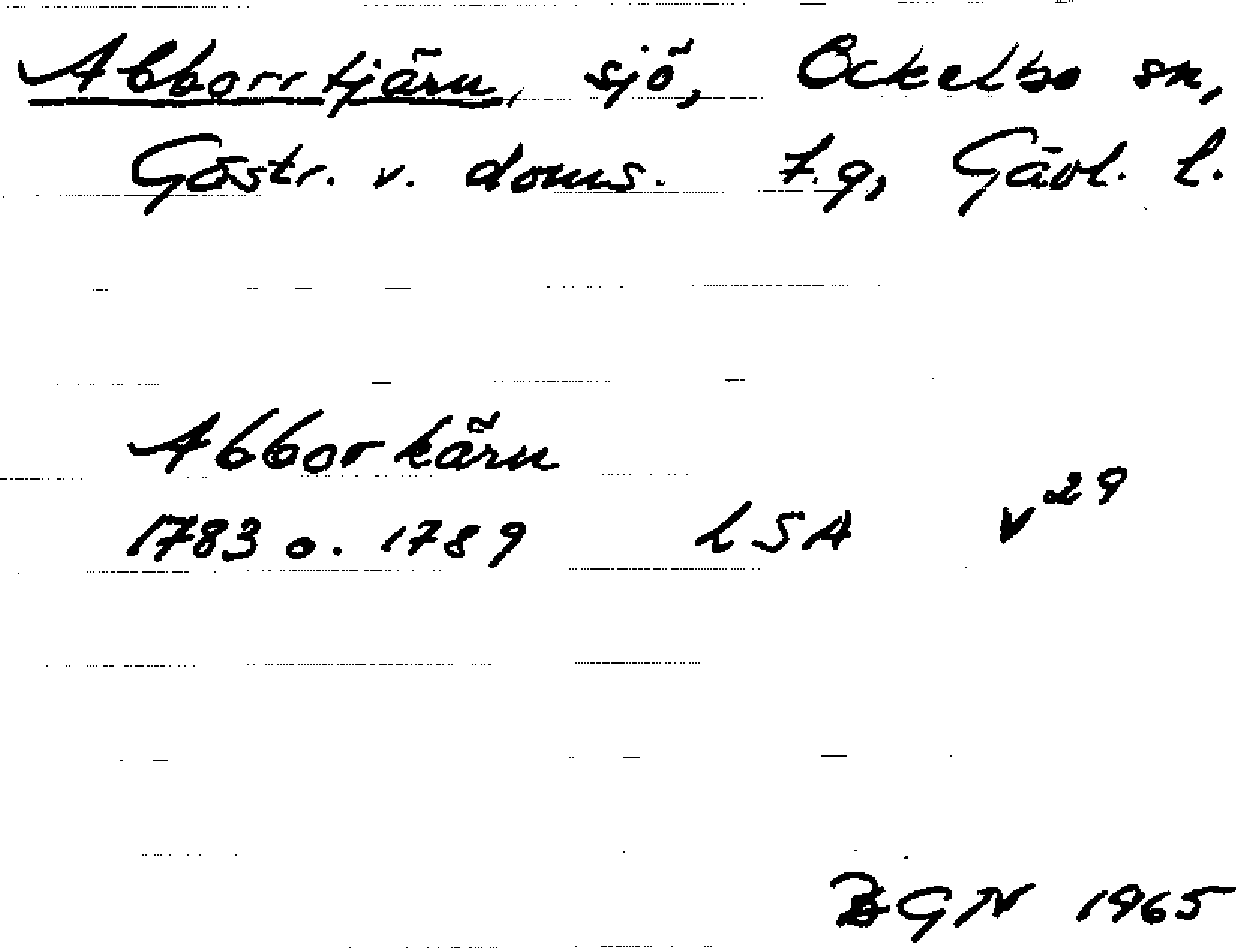 Abborrtjärn, sjö, Ockelbo sn,
Gästr. v. doms. t.g, Gävl. l.
Abborkärn
1783 o. 1789 LSA V29
BGN 1965